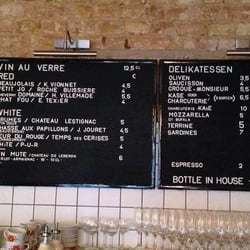 VIN AU VERRE 12,5 CL
RED €
BEAUJOLAIS / K. VIONNET 4,5
PETIT JO / ROCHE BUISSIERE 4
DOMAINE / H. VILLEMADE 5,5
CHAT FOU / E. TEXIER 4
WHITE
PRUNES / CHATEAU LESTIGNAC 5
CHASSE AUX PAPILLONS / J. JOURET 4,5
COEUR DU ROUGE / TEMPS DES CERISES 5
WHITE / P-U-R 4
VIN MUTÉ / CHATEAU DE
6
DELIKATESSEN
OLIVEN 3,5
SAUCISSON 4
CROQUE-MONSIEUR 5,5
KÄSE ODER
CHARCUTERIE 6
CHARCUTERIE-KÄSE 10
MOZZARELLA 5
DI BUFALA
TERRINE 5
SARDINES
ESPRESSO 2
BOTTLE IN HOUSE